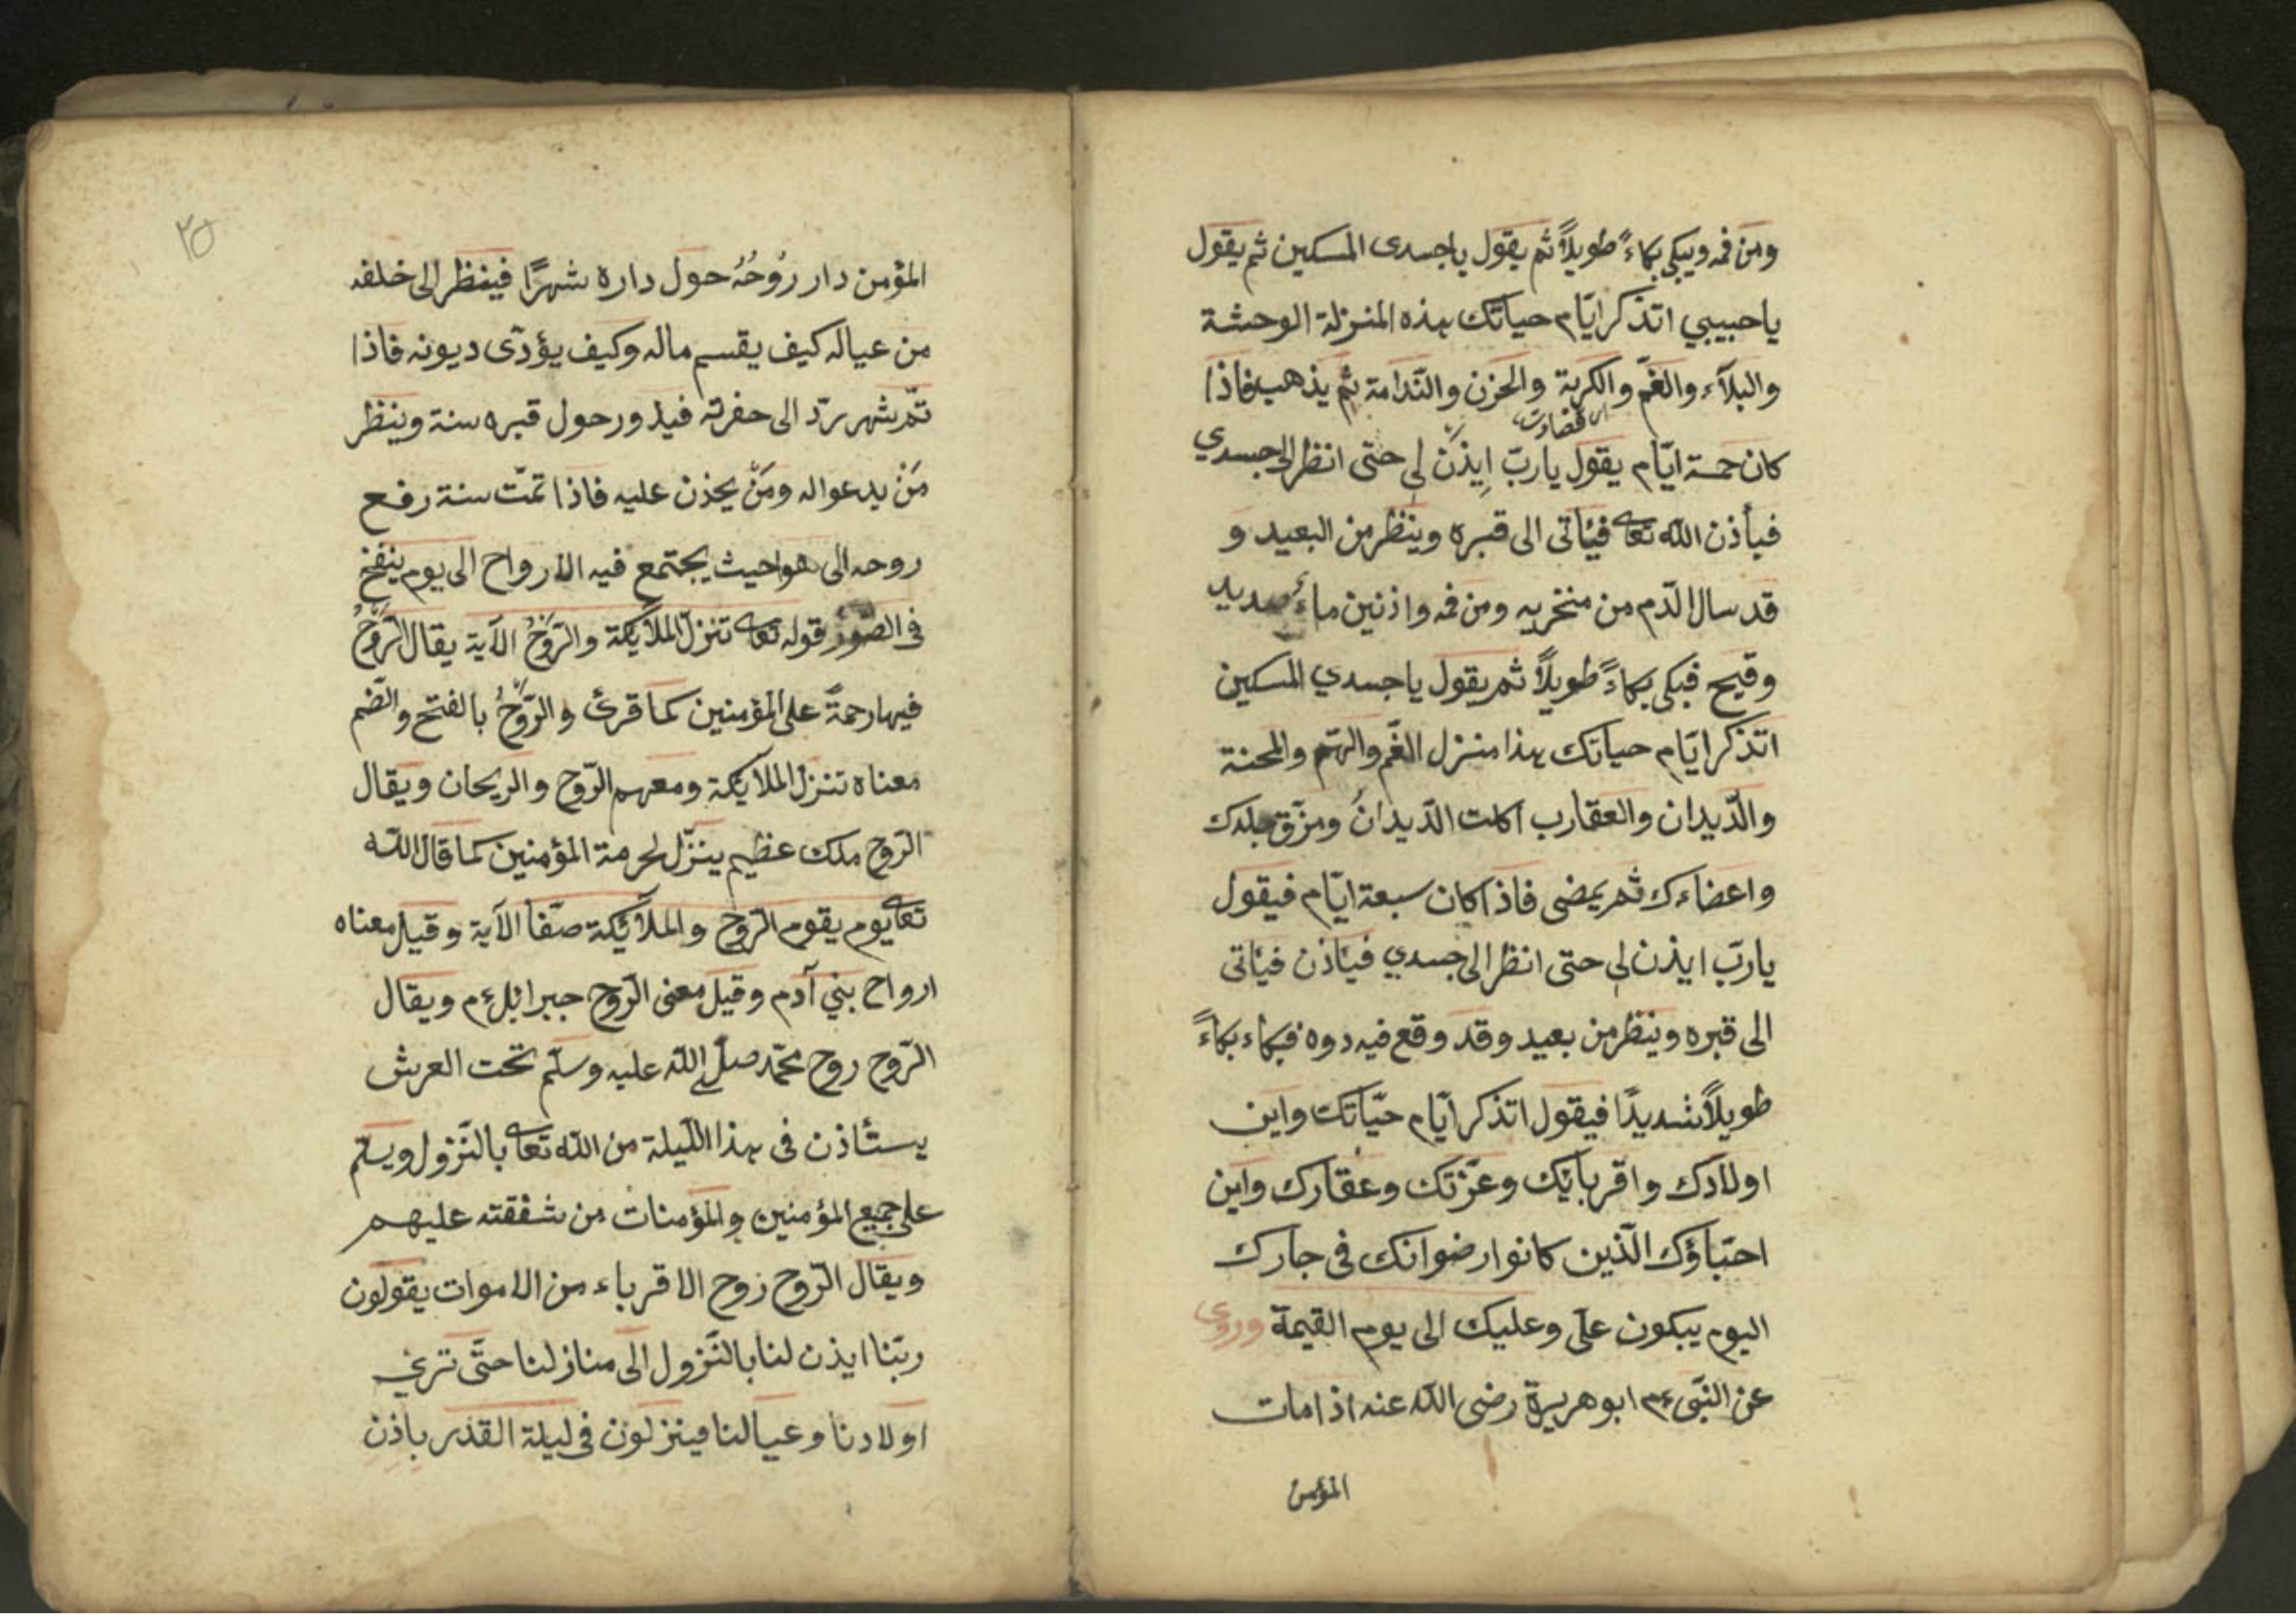 ومن فمه ويبكى بكاءً طويلاً ثم يقول ياجسدى المسكين ثم يقول
ياحبيبي اتذكر ايّام حياتك هذه المنزلة الوحشة
والبلآء والغمّ والكربة والحزن والنّدامة ثم يذهب فاذا
كان خمسة ايّام يقول ياربّ ايذن لى حتى انظر الى جسدي
فيأذن الله تعا فيئاتى الى قبره وينظر من البعيد و
قد سال الدّم من منخريه ومن فمه واذنين ماء صديد
وقيح فبكى بكاءً طويلاً ثم يقول ياجسدي المسكين
اتذكر ايّام حياتك هذا منزل الغّم والهّم والمحنة
والدّيدان والعقارب اكلت الدّيدانُ ومزّق جلدك
واعضاءك ثم يمضى فاذا كان سبعة ايّام فيقول
ياربّ ايذن لى حتى انظر الى جسدي فيئاذن فيئاتى
الى قبره وينظر من بعيد وقد وقع فيه دوه فبكاء بكاءً
طويلاً شديدًا فيقول اتذكر ايّام حيّاتك واين
اولادك واقربائك وعزّتك وعقارك واين
احبّاؤك الّذين كانوا رضوانك فى جارك
اليوم يبكون علّى وعليك الى يوم القيمة وروى
عن النّبى عم ابوهريرة رضى الله عنه اذا مات
المؤمن
٣٥
المؤمن دار رُوحُهُ حول داره شهرًا فينظر الى خلفه
من عياله كيف يقسم ماله وكيف يؤدّى ديونه فاذا
تمّ شهر يردّ الى حفرته فيدور حول قبره سنة وينظر
مَنْ يدعواله ومَنْ يحذن عليه فاذا تمّت سنة رفع
روحه الى هواحيث يجتمع فيه الارواح الى يوم ينفخ
فى الصّور قوله تعا تنزل الملآئكة والرّوحُ الآية يقال الرّوحُ
فيها رحمةً على المؤمنين كما قرئ والرّوحُ بالفتح والضّم
معناه تنزل الملائكة ومعهم الرّوح والريحان ويقال
الرّوح ملك عظيم ينزّل لحرمة المؤمنين كما قال الله
تعا يوم يقوم الرّوح والملآئكة صفّا الآية وقيل معناه
ارواح بني آدم وقيل معنى الرّوح جبرائل عم ويقال
الرّوح روح محمّد صلّى الله عليه وسلّم تحت العرش
يستئاذن فى هذا اللّيلة من الله تعا بالنّزول ويسلّم
على جميع المؤمنين والمؤمنات من شفقته عليهم
ويقال الرّوح روح الاقرباء من الاموات يقولون
ربّنا ايذن لنا بالنّزول الى منازلنا حتّى ترى
اولادنا وعيالنا فينزلون فى ليلة القدر باذن